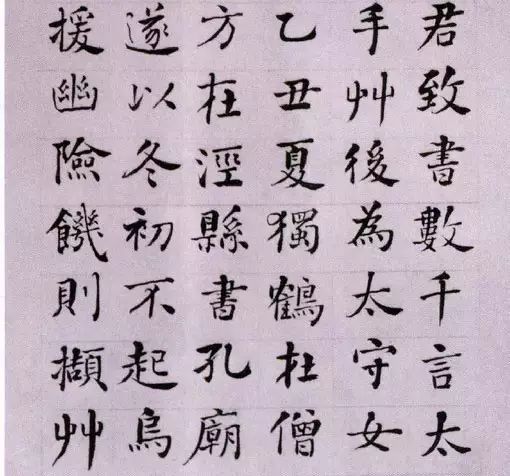 君致書數千言太
手艸後為太守女
乙丑夏獨鶴在僧
方在涇縣書孔廟
遂以冬初不起烏
援幽險饑則擷艸